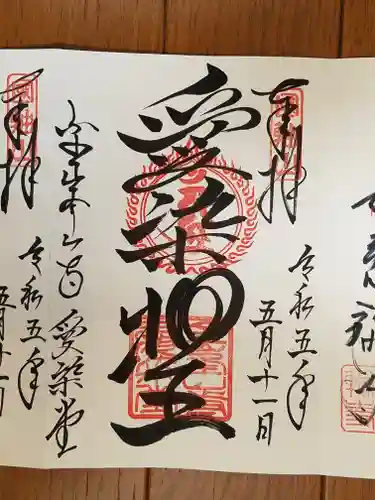 奉拝
令和五年
五月十一日
愛染明王
金峯山寺 愛染堂
奉拝
令和五年
五月十一